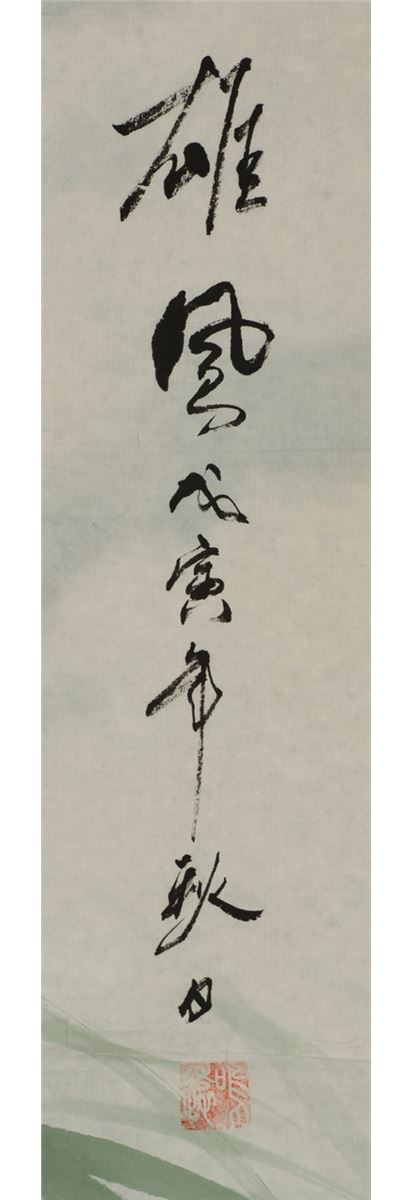 雄風戊寅年秋月